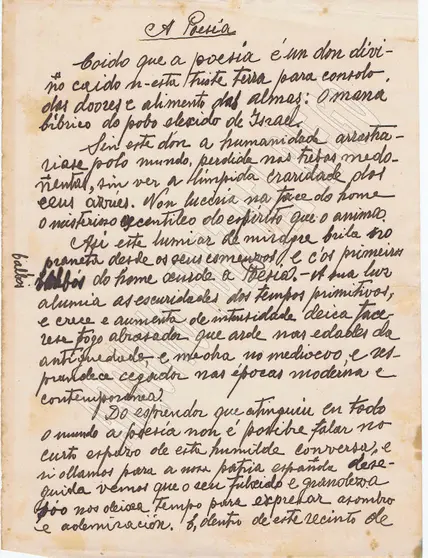 A Poesía
Coido que a poesía é un don divi-
ño caido n-esta triste terra para consolo
dos doores e alimento das almas: O maná
bíbrico do pobo elexido de Israel.
Sin este don a humanidade arrastra-
ríase polo mundo, perdida nas trebas medo-
ñentas, sin ver a límpida craridade dos
ceus azues. Non lucería na face do home
o misterioso centileo do esprito que o anima.
Ahí este lumiar de miraque brila no
praneta desde os seus comenzos, e c'os primeiros
balbos
do home xurde a Poesía. A sua luz
alumia as escuridades dos tempos primitivos,
e crece e aumenta de intensidade deica face-
rese fogo abrasador que arde nas edades da
antiguedade e medra no medioevo, e res-
prandece cegador nas épocas moderna e
contemporanea.
Do esprendor que atinguiu en todo
o mundo a poesía non é posibre falar no
curto espazo de esta humilde conversa, e
si ollamos para a nosa patria española dese-
guida vemos que o seu e grandeza
nos deixa tempo para expresar asombro
e ademiración. E, dentro de este recinto de